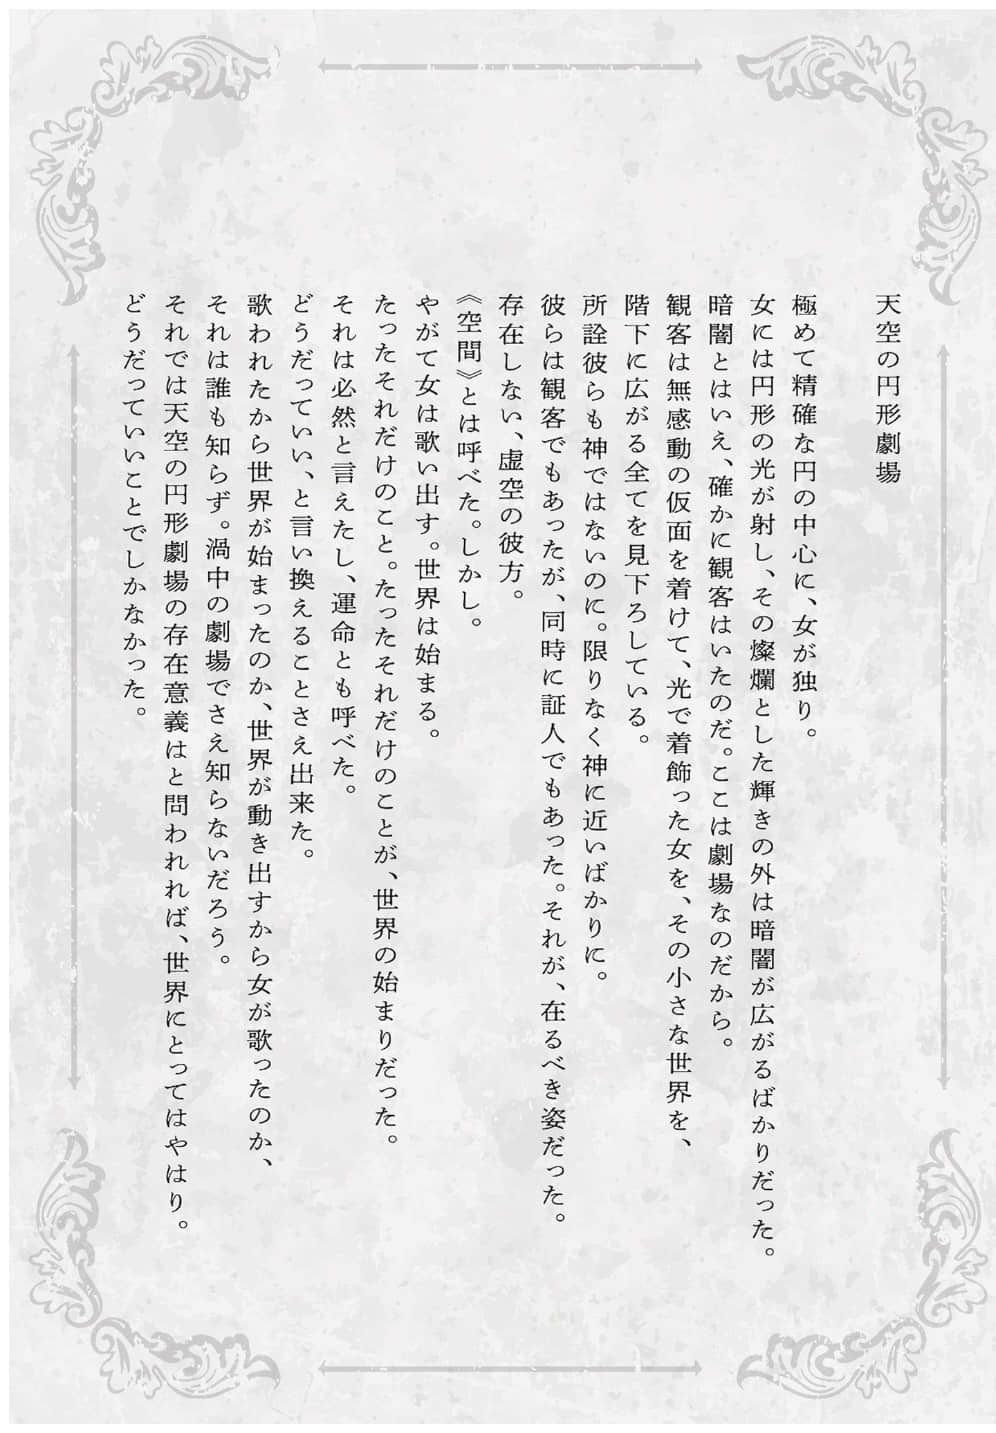 天空の円形劇場
極めて精確な円の中心に、女が独り。
女には円形の光が射し、その燦爛とした輝きの外は暗闇が広がるばかりだった。
暗闇とはいえ、確かに観客はいたのだ。ここは劇場なのだから。
観客は無感動の仮面を着けて、光で着飾った女を、その小さな世界を、
階下に広がる全てを見下ろしている。
所詮彼らも神ではないのに。限りなく神に近いばかりに。
彼らは観客でもあったが、同時に証人でもあった。それが、在るべき姿だった。
存在しない、虚空の彼方。
《空間》とは呼べた。しかし。
やがて女は歌い出す。世界は始まる。
たったそれだけのこと。たったそれだけのことが、世界の始まりだった。
それは必然と言えたし、運命とも呼べた。
どうだっていい、と言い換えることさえ出来た。
歌われたから世界が始まったのか、世界が動き出すから女が歌ったのか、
それは誰も知らず。渦中の劇場でさえ知らないだろう。
それでは天空の円形劇場の存在意義はと問われれば、世界にとってはやはり。
どうだっていいことでしかなかった。